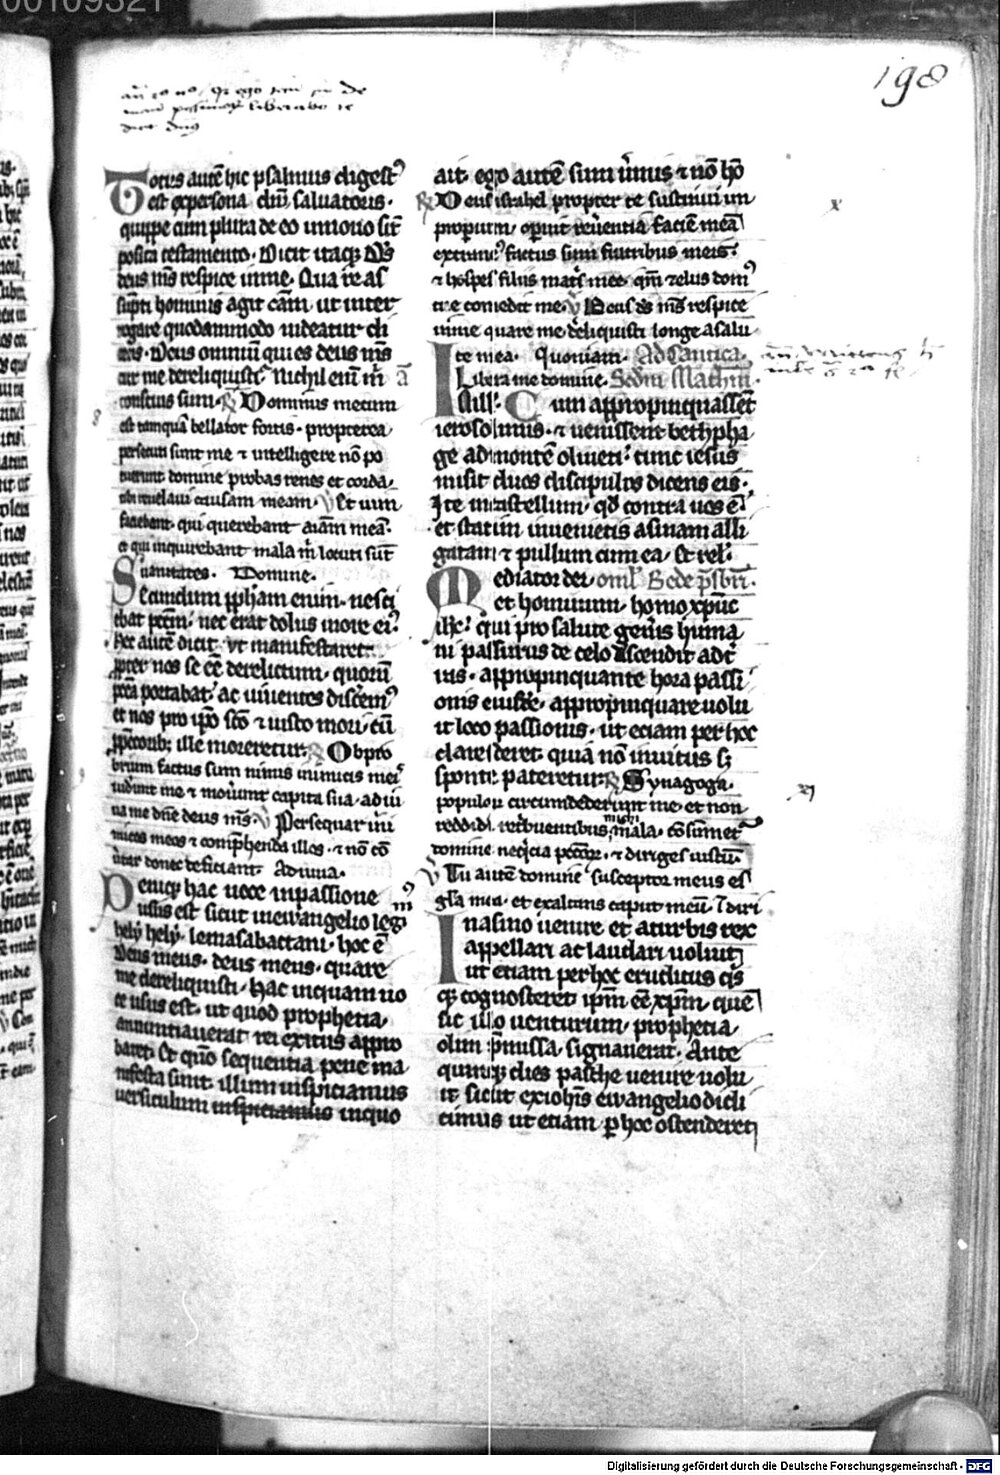 00109321
198
Totus autē hic psalmus digest᾽
est ex persona dn̄i saluatoris.
quippe cum plura de eo in nouo sit̄
posita testamento. Dicit itaqꝫ Ds̄
deus ms̄ respice in me. Qua rē as
sūpti hominis agit cām ut inter
rogare quodammodo uideatur di
cens. Deus omniū qui es deus ms̄
cur me dereliquisti. Nichil enī m̄
conscius sum. ℟ Dominus mecum
est tamquā bellator fortis. propterea
persecuti sunt me ⁊ intelligere nō po
tuerunt domine probas renes et corda.
tibi reuelaui causam meam. ℣ Et uim
faciebant qui querebant aīam meā.
et qui inquirebant mala m̄ locuti sūt
uanitates. Domine.
Secundum ꝓph̄am enim. nesci
ebat pcc̄m. nec erat dolus in ore ei᾽.
Hec autē dicit ut manifestaret.
ꝓpter nos se eē derelictum. quorū
pcc̄a portabat. ac uiuentes discēm᾽
et nos pro ip̄o sc̄o ⁊ iusto mori. cū
ille moreretur. ℟ Obpro
brium factus sum nimis inimicis meis
uidērunt me ⁊ mouerunt capita sua. adiu
ua me dn̄e deus ms̄. ℣ Persequar ini
micos meos ⁊ cōprehendā illos. ⁊ nō cō
uertar donec deficiant. Adiuua.
Deniqꝫ hac uoce in passione
usus est sicut in ewangelio legim᾽
hely hely. lemasabactani. hoc ē
Deus meus. deus meus. quare
me dereliquisti. Hac inquam uo
ce usus est. ut quod prophetia.
annuntiauerat rei exitus appro
baret. Et quō sequentia pene ma
nifesta sunt. illum inspiciamus
uersiculum inspiciamus in quo
ait. ego autē sum u̇mis ⁊ nō hō
℟ Deus israhel propter te sustinui im
properium. operuit reuerentia faciē meā
extrane᾽ factus sum fratribus meis.
⁊ hospes filiis matris mee. qm̄ zelus dom᾽
tue comedit me. ℣ Deus ds̄ ms̄ respice
in me quare me dereliquisti longe a salu
te mea. Quoniam. Ad Cantica.
Libera me domine. Sedm Mathm̄.
In illo. Cum appropinquasset
ierosolimis. ⁊ uenissent bethpha
ge ad montē oliueti. tunc iesus
misit duos discipulos dicens eis.
Ite in castellum. qd̄ contra uos ē.
et statim inuenietis asinam alli
gatam ⁊ pullum cum ea. Et rel᾽.
Mediator dei. oml᾽ Bede p̄sbri.
et hominum. homo xp̄uc
ih̄c. qui pro salute gen̄is huma
ni passurus de celo descendit ad t̄
ras. appropinquante hora passi
onis eiusdē. appropinquare uolu
it loco passionis. ut eciam per hoc
claresceret. quia nō inuitus sꝫ
sponte pateretur. ℟ Synagoga.
populorum circumdederunt me. et non
reddidi retribuentibus michi mala. cōsumet᾽
domine nequicia pcc̄or. ⁊ diriges iustū.
℣ Tu autē domine susceptor meus es
gl̄a mea. et exaltans caput meū.
In asino uenire et a turbis rex
appellari ac laudari uoluit.
ut etiam per hoc eruditus q᾽s
qꝫ cognosceret ip̄m eē xp̄m. quē
sic illo uenturum. prophetia
olim p̄missa signauerat. Ante
quinqꝫ dies pasche uenire uolu
it sicut ex ioh̄is ewangelio didi
cimus ut etiam ꝑ hoc ostenderet
x
xj
Digitalisierung gefördert durch die Deutsche Forschungsgemeinschaft - DFG